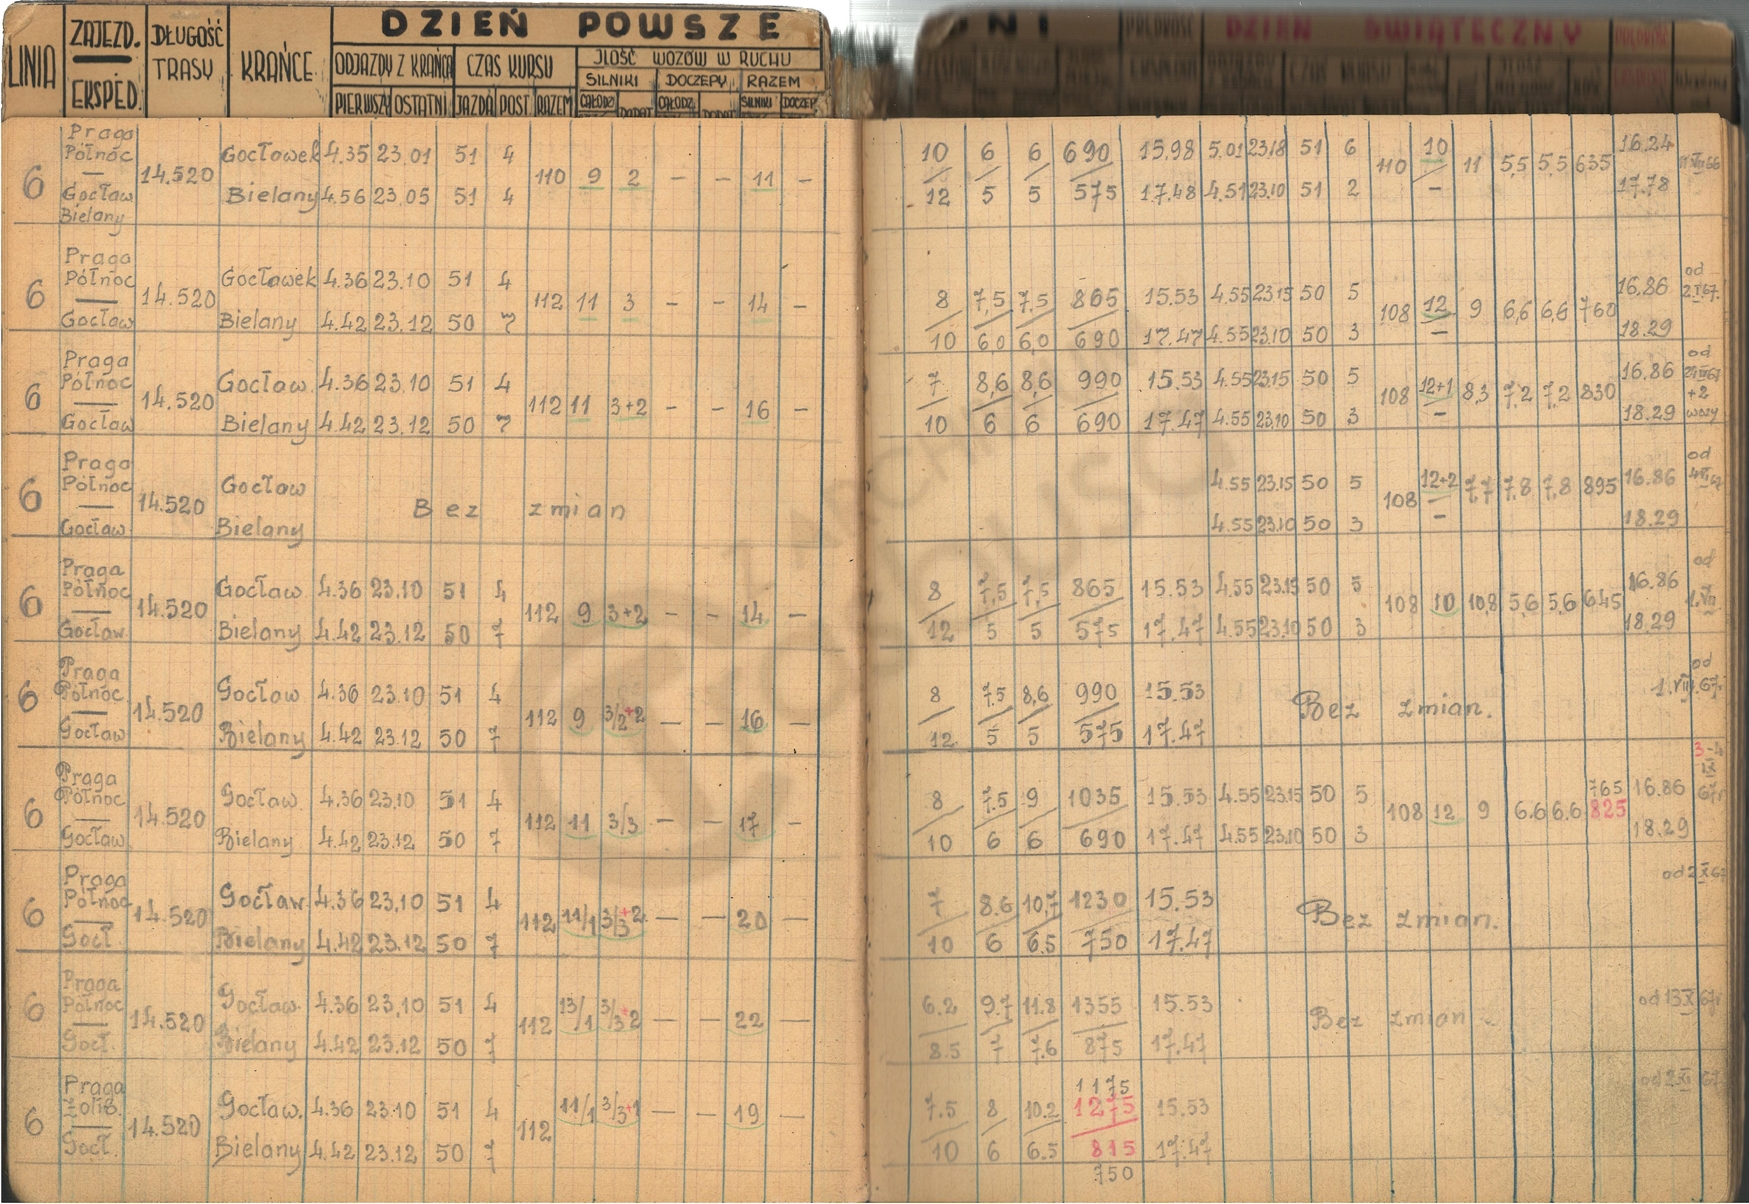 LINIA ZAJEZD. EKSPED. DŁUGOŚĆ TRASY KRAŃCE DZIEŃ POWSZE DNI DZIEŃ ŚWIĄTECZNY
ODJAZDY Z KRAŃCA CZAS KURSU ILOŚĆ WOZÓW W RUCHU
SILNIKI DOCZEPY RAZEM
PIERWSZY OSTATNI JAZDA POST. RAZEM CAŁODZ DODAT CAŁODZ DODAT SILNIKI DOCZEP
Praga
Północ
—
Gocław
Bielany
6 14.520 Gocławek 4.35 23.01 51 4 110 9 2 — — 11 — 10 6 6 690 15.98 5.01 23.18 51 6 110 10 11 5,5 5,5 635 16.24
Bielany 4.56 23.05 51 4 12 5 5 575 17.48 4.51 23.10 51 2 — 17.78
Praga
Północ
—
Gocław
6 14.520 Gocławek 4.36 23.10 51 4 112 11 3 — — 14 — 8 7,5 7,5 865 15.53 4.55 23.15 50 5 108 12 9 6,6 6,6 760 16.86 od
Bielany 4.42 23.12 50 7 10 6,0 6,0 690 17.47 4.55 23.10 50 3 — 18.29
Praga
Północ
—
Gocław
6 14.520 Gocław. 4.36 23.10 51 4 112 11 3+2 — — 16 — 7 8,6 8,6 990 15.53 4.55 23.15 50 5 108 12+1 8,3 7,2 7,2 830 16.86 od
+2
wozy
Bielany 4.42 23.12 50 7 10 6 6 690 17.47 4.55 23.10 50 3 — 18.29
Praga
Północ
—
Gocław
6 14.520 Gocław Bez zmian 4.55 23.15 50 5 108 12+2 7,7 7,8 7,8 895 16.86 od
Bielany 4.55 23.10 50 3 — 18.29
Praga
Północ
—
Gocław
6 14.520 Gocław. 4.36 23.10 51 4 112 9 3+2 — — 14 — 8 7,5 7,5 865 15.53 4.55 23.15 50 5 108 10 10,8 5,6 5,6 645 16.86 od 1.VII
Bielany 4.42 23.12 50 7 12 5 5 575 17.47 4.55 23.10 50 3 18.29
Praga
Północ
—
Gocław
6 14.520 Gocław 4.36 23.10 51 4 112 9 3/2+2 — — 16 — 8 7.5 8,6 990 15.53 Bez zmian. od 1.VIII.67r
Bielany 4.42 23.12 50 7 12 5 5 575 17.47
Praga
Północ
—
Gocław
6 14.520 Gocław. 4.36 23.10 51 4 112 11 3/3 — — 17 — 8 7.5 9 1035 15.53 4.55 23.15 50 5 108 12 9 6.6 6.6 765 825 16.86
Bielany 4.42 23.12 50 7 10 6 6 690 17.47 4.55 23.10 50 3 18.29
Praga
Północ
—
Gocł.
6 14.520 Gocław. 4.36 23.10 51 4 112 11/1 3/3+2 — — 20 — 7 8.6 10,7 1230 15.53 Bez zmian. od 2 X 67
Bielany 4.42 23.12 50 7 10 6 6.5 750 17.47
Praga
Północ
—
Gocł.
6 14.520 Gocław. 4.36 23.10 51 4 112 13/1 3/3+2 — — 22 — 6.2 9.7 11.8 1355 15.53 Bez zmian. od 13 X 67r
Bielany 4.42 23.12 50 7 8.5 7 7.6 875 17.47
Praga
Żolib.
—
Gocł.
6 14.520 Gocław. 4.36 23.10 51 4 112 11/1 3/3+1 — — 19 — 7.5 8 10.2 1175 1275 15.53 od 2 XI 67
Bielany 4.42 23.12 50 7 10 6 6.5 815 750 17.47